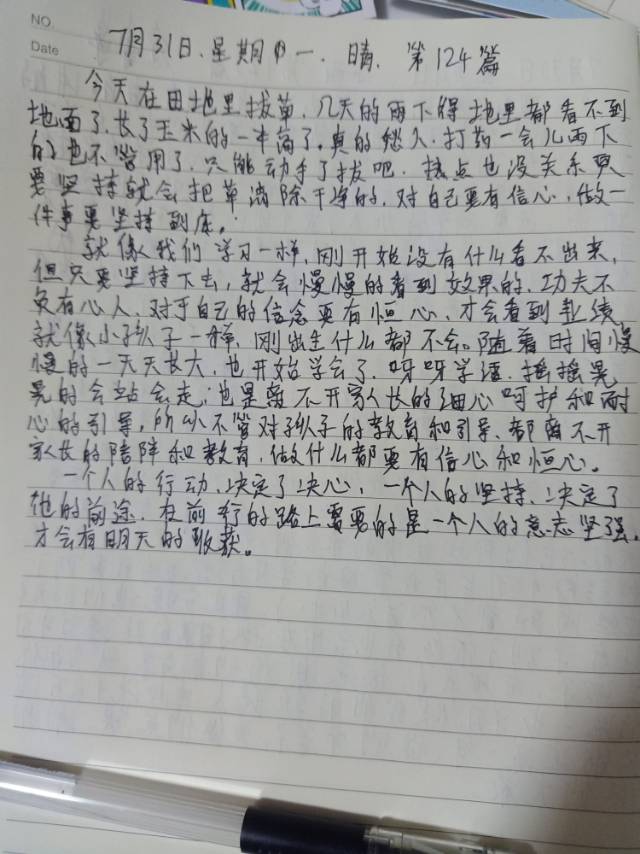 NO.
Date
7月31日.星期一.晴.第124篇
今天在田地里拔草.几天的雨下得地里都看不到
地面了.长了玉米的一半高了.真的愁人.打药一会儿雨下
的也不管用了.只能动手了拔吧.热点也没关系只
要坚持就会把草消除干净的.对自己要有信心,做一
件事要坚持到底。
就像我们学习一样,刚开始没有什么看不出来,
但只要坚持下去,就会慢慢的看到效果的.功夫不
负有心人.对于自己的信念要有恒心.才会看到业绩.
就像小孩子一样,刚出生什么都不会。随着时间慢
慢的一天天长大,也开始学会了.呀呀学语.摇摇晃
晃的会站会走;也是离不开家人长的细心呵护和耐
心的引导,所以不管对孩子的教育和引导.都离不开
家长的陪陪和教育.做什么都要有信心和恒心。
一个人的行动.决定了决心,一个人的坚持.决定了
他的前途.在前行的路上需要的是一个人的意志坚强.
才会有明天的收获。